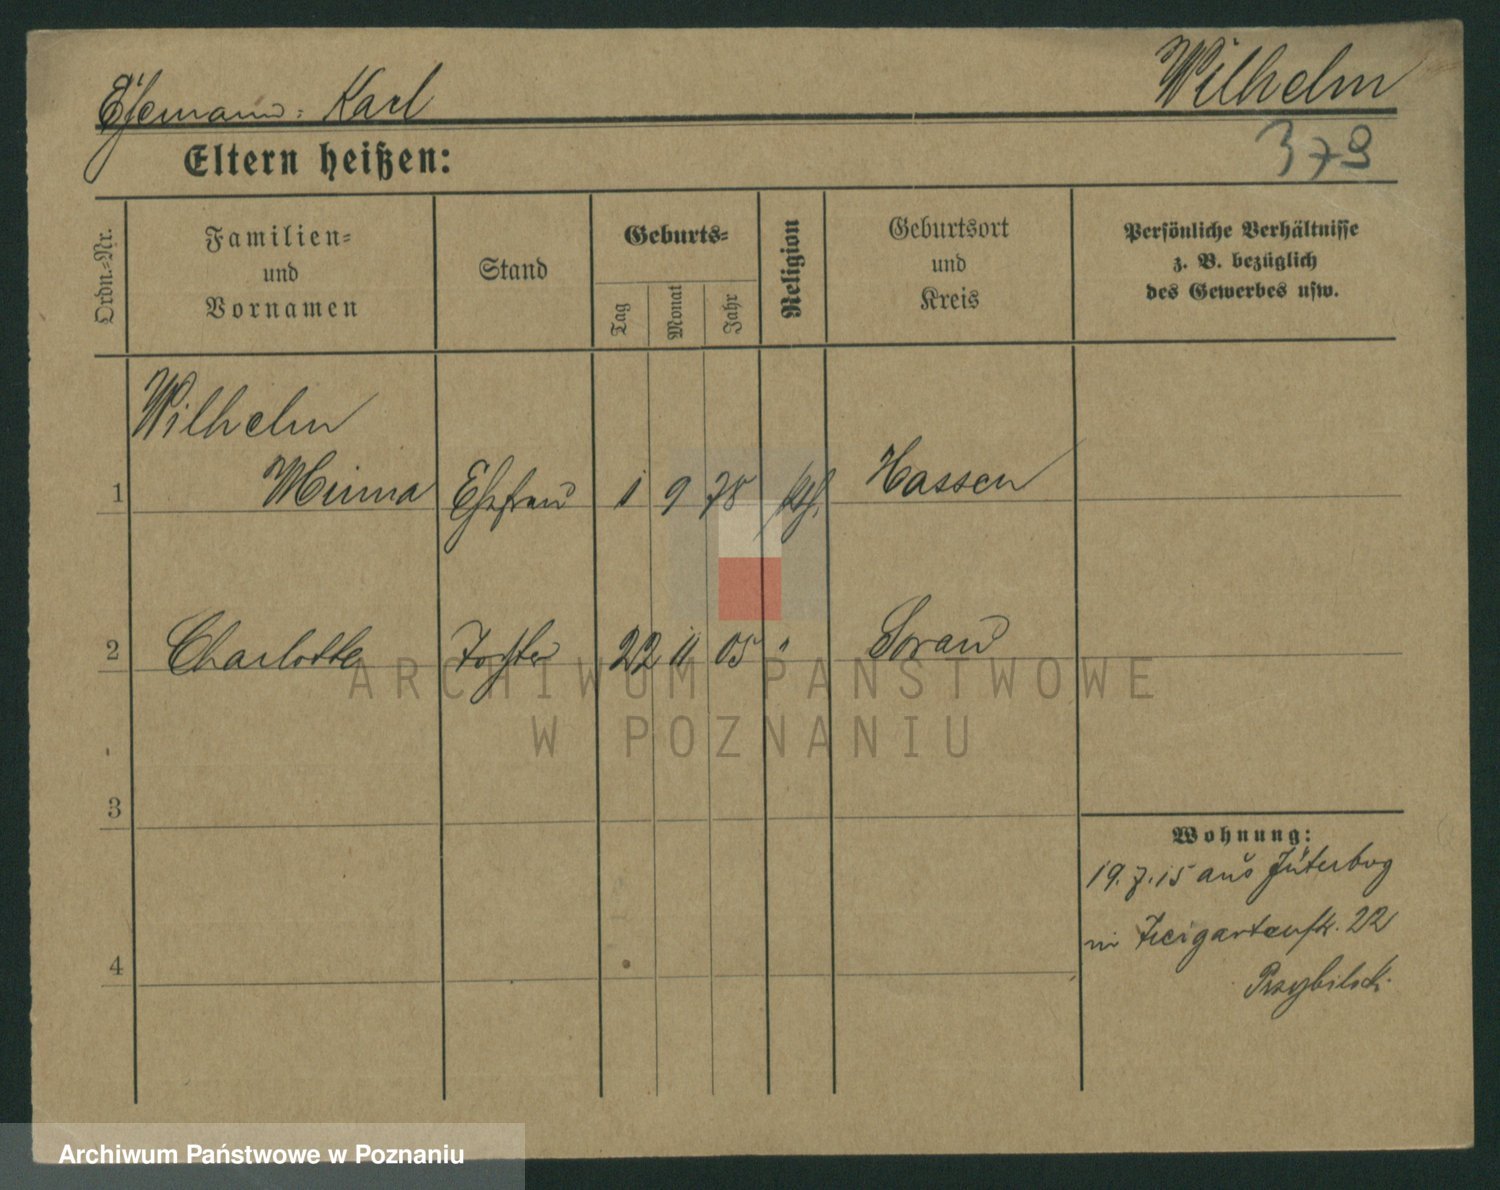 Ehemann: Karl
Wilhelm
379
Eltern heißen:
Ordn.=Nr.
Familien=
und
Vornamen
Stand
Geburts=
Tag
Monat
Jahr
Religion
Geburtsort
und
Kreis
Persönliche Verhältnisse
z. B. bezüglich
des Gewerbes usw.
Wilhelm
1 Minna Ehefrau 1 9 78 kth. Hassen
2 Charlotte Tochter 22 11 05 " Sorau
3
4
Wohnung:
19.7.15 aus Jüterbog
in Tiergartenstr. 22
Przybilski
ARCHIWUM PAŃSTWOWE
W POZNANIU
Archiwum Państwowe w Poznaniu